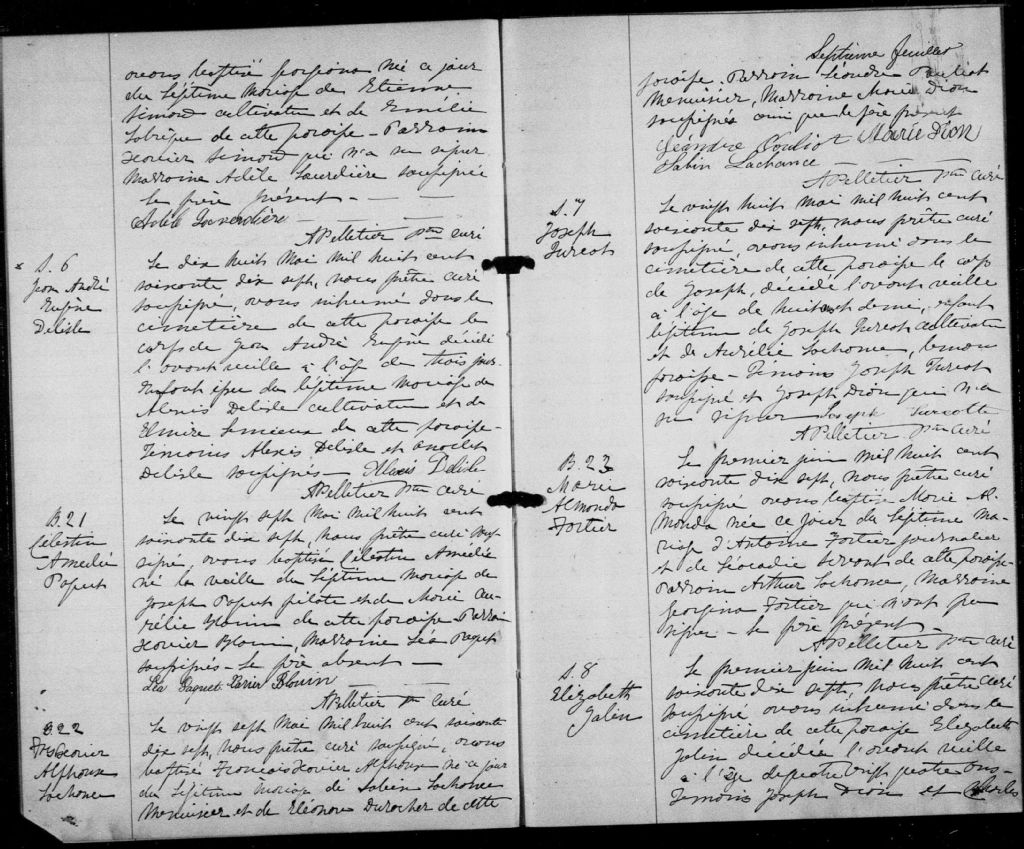 avons baptisé
né ce jour
du légitime mariage de Etienne
Simard cultivateur et de Emélie
Labrèque de cette paroisse - Parrain
Xavier Simard qui n'a su signer
Marraine Adèle Laverdière soussignée
le père présent - - -
Adèle Laverdière
A Pelletier ptre curé
S. 6
Jean André
Eugène
Delisle
Le dix huit Mai mil huit cent
soixante dix sept, nous prêtre curé
soussigné, avons inhumé dans le
cimetière de cette paroisse le
corps de Jean André Eugène décédé
l'avant veille à l'âge de trois jours.
Enfant issu du légitime mariage de
Alexis Delisle cultivateur et de
Elmire Lemieux de cette paroisse -
Témoins Alexis Delisle et Anaclet
Delisle soussignés - Alexis Delisle
A Pelletier ptre curé
B. 21
Célestin
Amedée
Paquet
Le vingt sept Mai mil huit cent
soixante dix sept, nous prêtre curé sous-
signé, avons baptisé Célestin Amedée
né la veille du légitime mariage de
Joseph Paquet pilote et de Marie Au-
rélie Blouin de cette paroisse - Parrain
Xavier Blouin, Marraine Léa Paquet
soussignés - Le père absent -
Léa Paquet Xavier Blouin
A Pelletier ptre curé
B. 22
Frs Xavier
Alphonse
Lachance
Le vingt sept Mai mil huit cent soixante
dix sept, nous prêtre curé soussigné, avons
baptisé François Xavier Alphonse né ce jour
du légitime mariage de Sabin Lachance
Menuisier et de Eléonore Durocher de cette
Septième feuillet
paroisse. Parrain Léandre Pouliot
Menuisier, Marraine Marie Dion
soussignés ainsi que le père présent
Léandre Pouliot Marie Dion
Sabin Lachance
A Pelletier ptre curé
S. 7
Joseph
Turcot
Le vingt huit Mai mil huit cent
soixante dix sept, nous prêtre curé
soussigné avons inhumé dans le
cimetière de cette paroisse le corps
de Joseph, décédé l'avant veille
à l'âge de huit et demi, enfant
légitime de Joseph Turcot cultivateur
et de Aurélie Lachance, de
paroisse - Témoins Joseph Turcot
soussigné et Joseph Dion qui n'a
su signer Joseph Turcotte
A Pelletier ptre curé
B. 23
Marie
Almonda
Fortier
Le premier juin mil huit cent
soixante dix sept, nous prêtre curé
soussigné avons baptisé Marie Al-
monda née ce jour du légitime ma-
riage d'Antoine Fortier journalier
et de Léocadie Servant de cette paroisse -
Parrain Arthur Lachance, Marraine
Georgina Fortier qui n'ont pu
signer - Le père présent -
A Pelletier ptre curé
S. 8
Elizabeth
Jalin
Le premier juin mil huit cent
soixante dix sept, nous prêtre curé
soussigné avons inhumé dans le
cimetière de cette paroisse Elizabeth
Jalin décédée l'avant veille
à l'âge de quatre vingt quatre ans -
Témoins Joseph Dion et Charles